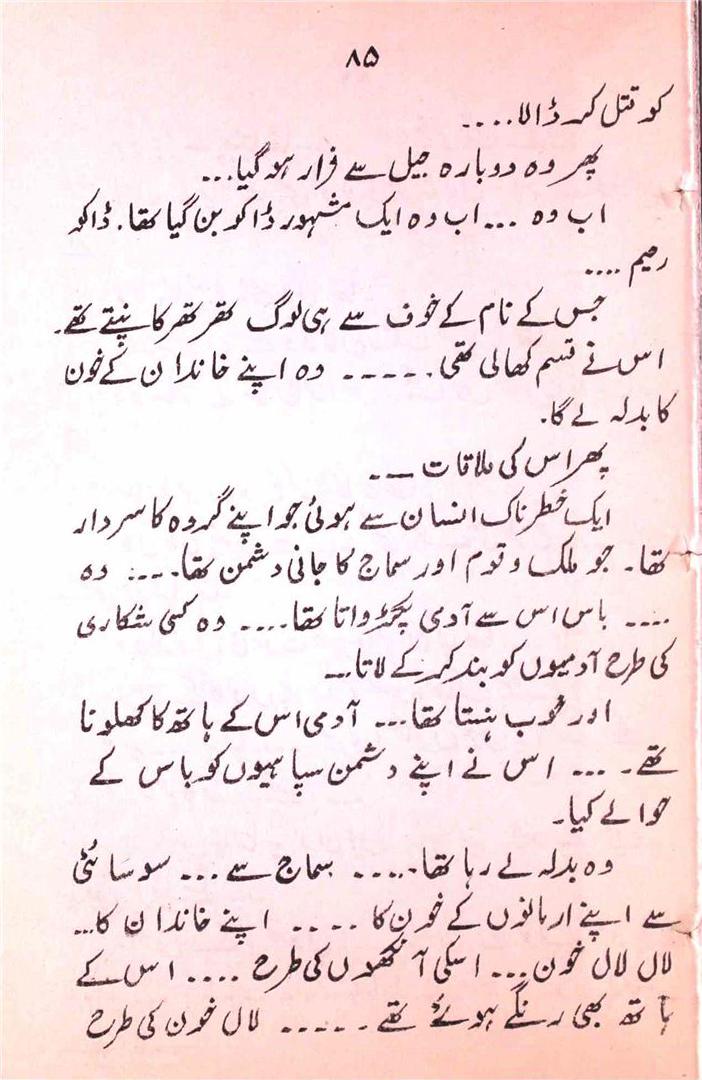 ۸۵
کو قتل کر ڈالا....
پھر وہ دوبارہ جیل سے فرار ہو گیا...
اب وہ ... اب وہ ایک مشہور ڈاکو بن گیا تھا. ڈاکو
رحیم ....
جس کے نام کے خوف سے ہی لوگ تھر تھر کانپتے تھے۔
اس نے قسم کھالی تھی ..... وہ اپنے خاندان کے خون
کا بدلہ لے گا.
پھر اس کی ملاقات ـــ ..
ایک خطرناک انسان سے ہوئی جو اپنے گروہ کا سردار
تھا۔ جو ملک و قوم اور سماج کا جانی دشمن تھا.... وہ
.... باس اس سے آدمی پکڑواتا تھا.... وہ کسی شکاری
کی طرح آدمیوں کو بند کر کے لاتا...
اور خوب ہنستا تھا... آدمی اس کے ہاتھ کا کھلونا
تھے۔ ... اس نے اپنے دشمن سپاہیوں کو باس کے
حوالے کیا۔
وہ بدلہ لے رہا تھا..... سماج سے ... سوسائٹی
سے اپنے ارمانوں کے خون کا .... اپنے خاندان کا...
لال لال خون ... اسکی آنکھوں کی طرح .... اس کے
ہاتھ بھی رنگے ہوئے تھے ..... لال خون کی طرح